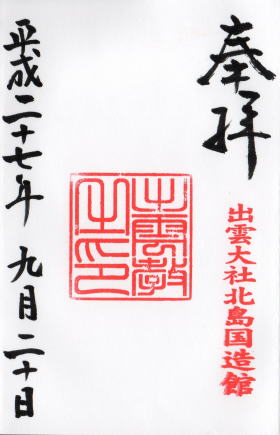 奉拝
出雲大社北島国造館
出雲教
之印
平成二十七年 九月二十日